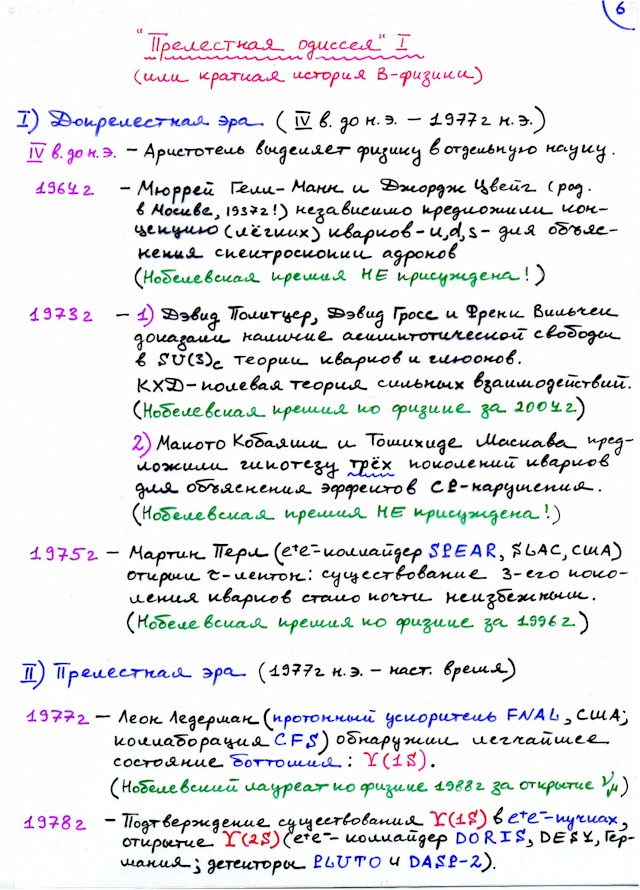 6
"Прелестная одиссея" I
(или краткая история B-физики)
I) Допрелестная эра (IV в. до н.э. – 1977г н.э.)
IV в. до н.э. – Аристотель выделяет физику в отдельную науку.
1964г – Мюррей Гелл-Манн и Джордж Цвейг (род.
в Москве, 1937г!) независимо предложили кон-
цепцию (лёгких) кварков - u,d,s - для объяс-
нения спектроскопии адронов
(Нобелевская премия НЕ присуждена!)
1973г – 1) Дэвид Политцер, Дэвид Гросс и Френк Вильчек
доказали наличие асимптотической свободы
в SU(3)c теории кварков и глюонов.
КХД – полевая теория сильных взаимодействий.
(Нобелевская премия по физике за 2004г)
2) Макото Кобаяши и Тошихиде Маскава пред-
ложили гипотезу трёх поколений кварков
для объяснения эффектов CP-нарушения.
(Нобелевская премия НЕ присуждена!)
1975г – Мартин Перл (e⁺e⁻-коллайдер SPEAR, SLAC, США)
открыл τ-лептон: существование 3-его поко-
ления кварков стало почти неизбежным.
(Нобелевская премия по физике за 1996г)
II) Прелестная эра (1977г н.э. – наст. время)
1977г – Леон Ледерман (протонный ускоритель FNAL, США;
коллаборация CFS) обнаружил легчайшее
состояние боттомия: ϒ(1S).
(Нобелевский лауреат по физике 1988г за открытие νμ)
1978г – Подтверждение существования ϒ(1S) в e⁺e⁻-пучках,
открытие ϒ(2S) (e⁺e⁻- коллайдер DORIS, DESY, Гер-
мания; детекторы PLUTO и DASP-2).